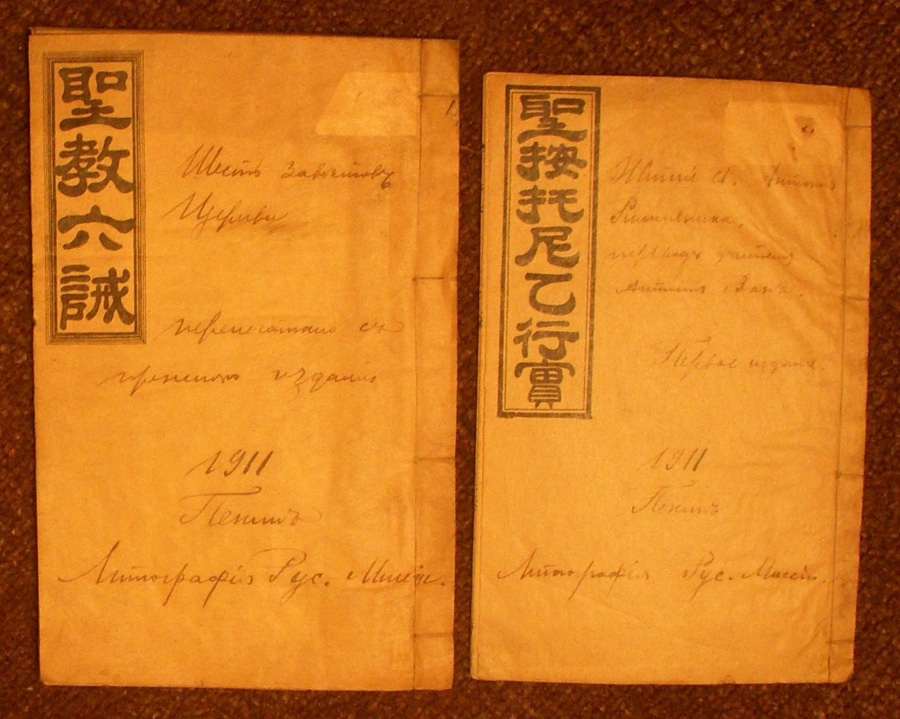 聖教六誡
Шесть Завѣтовъ
Церкви
перепечатано съ
прежняго изданія
1911
Пекинъ
Литографія Рус. Миссіи.
聖按托尼乙行實
Житіе св. Антонія
переводъ
Первое изданіе
1911
Пекинъ
Литографія Рус. Миссіи.